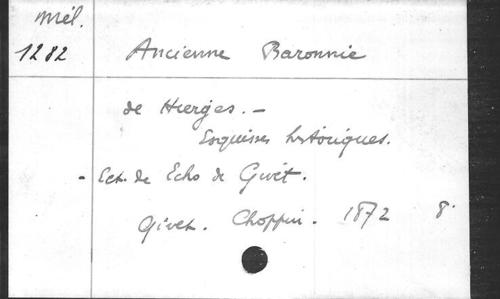 Mél.
1282
Ancienne Baronnie
de Hierges. -
Esquisses historiques.
- Ext. de Echo de Givet.
Givet. Choppin. 1872 8°